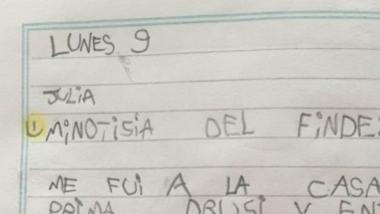 LUNES 9
JULIA
1 MiNOTiSiA DEL FiNDE:
ME FUi A LA CASA
PRIMA DRUSI Y EN